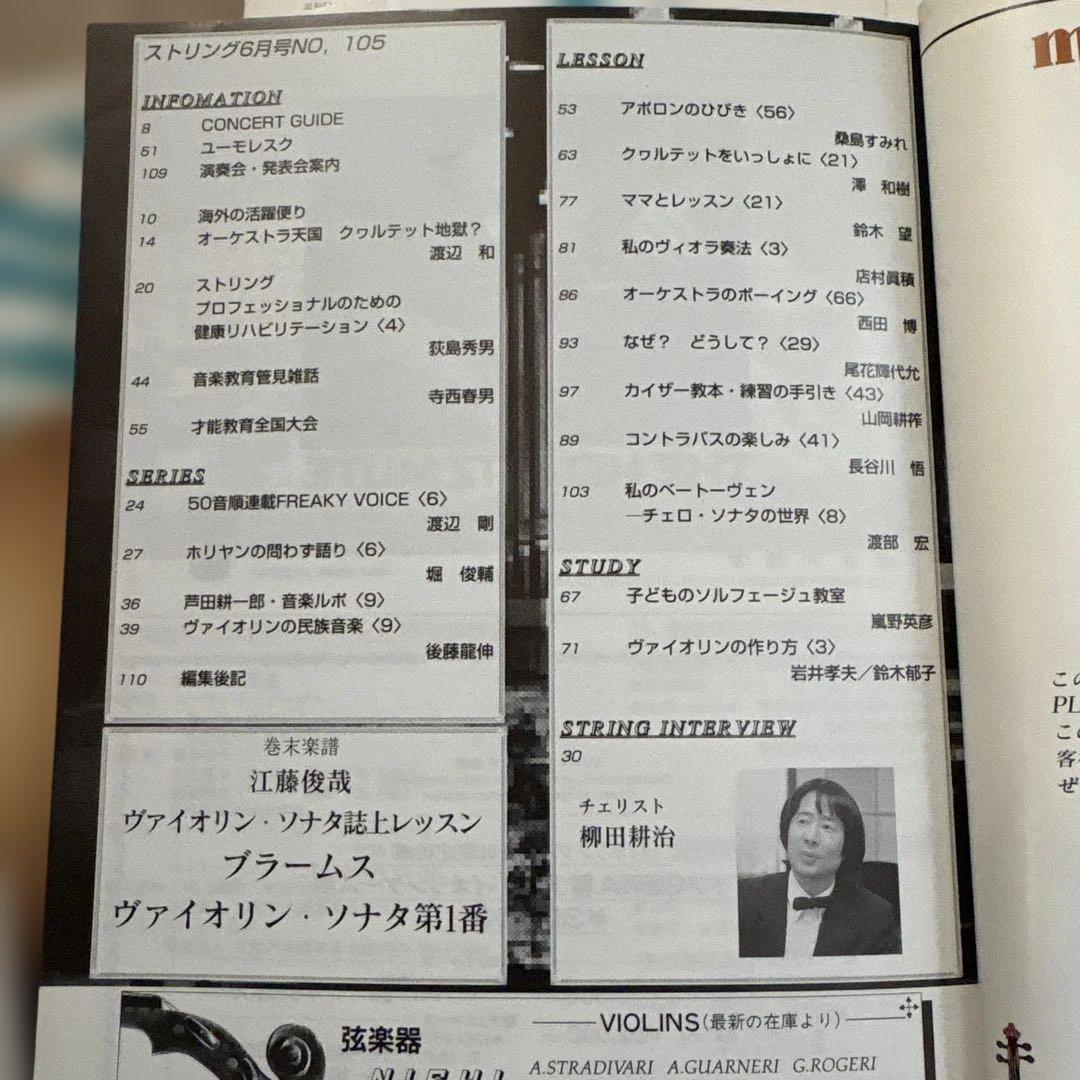 ストリング6月号NO, 105
INFOMATION
8 CONCERT GUIDE
51 ユーモレスク
109 演奏会・発表会案内
10 海外の活躍便り
14 オーケストラ天国 クヮルテット地獄?
渡辺 和
20 ストリング
プロフェッショナルのための
健康リハビリテーション〈4〉
荻島秀男
44 音楽教育管見雑話
寺西春男
55 才能教育全国大会
SERIES
24 50音順連載FREAKY VOICE〈6〉
渡辺 剛
27 ホリヤンの問わず語り〈6〉
堀 俊輔
36 芦田耕一郎・音楽ルポ〈9〉
39 ヴァイオリンの民族音楽〈9〉
後藤龍伸
110 編集後記
巻末楽譜
江藤俊哉
ヴァイオリン・ソナタ誌上レッスン
ブラームス
ヴァイオリン・ソナタ第1番
LESSON
53 アポロンのひびき〈56〉
桑島すみれ
63 クヮルテットをいっしょに〈21〉
澤 和樹
77 ママとレッスン〈21〉
鈴木 望
81 私のヴィオラ奏法〈3〉
店村眞積
86 オーケストラのボーイング〈66〉
西田 博
93 なぜ? どうして?〈29〉
尾花輝代允
97 カイザー教本・練習の手引き〈43〉
山岡耕筰
89 コントラバスの楽しみ〈41〉
長谷川 悟
103 私のベートーヴェン
―チェロ・ソナタの世界〈8〉
渡部 宏
STUDY
67 子どものソルフェージュ教室
嵐野英彦
71 ヴァイオリンの作り方〈3〉
岩井孝夫/鈴木郁子
STRING INTERVIEW
30
チェリスト
柳田耕治
弦楽器
VIOLINS(最新の在庫より)
A.STRADIVARI A.GUARNERI G.ROGERI
m
この
PL
この
客
ぜ